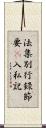 法集別行録節
要入私記